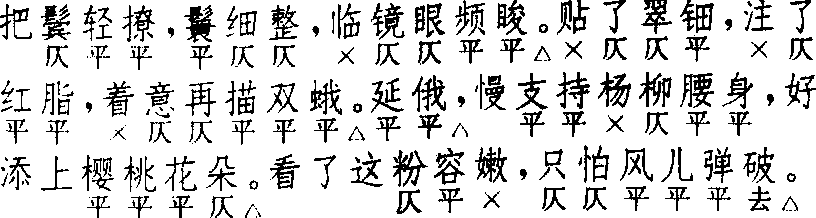 把鬓轻撩,鬟细整,临镜眼频睃。贴了翠钿,注了
仄 平 平 平 仄 仄 × 仄 仄 平 平 △ × 仄 仄 平 × 仄
红脂,着意再描双蛾。延俄,慢支持杨柳腰身,好
平 平 × 仄 仄 平 平 平 △ 平 平 △ 平 平 × 仄 平 平
添上樱桃花朵。看了这粉容嫩,只怕风儿弹破。
平 平 平 仄 △ 仄 平 × 仄 仄 平 平 平 去 △